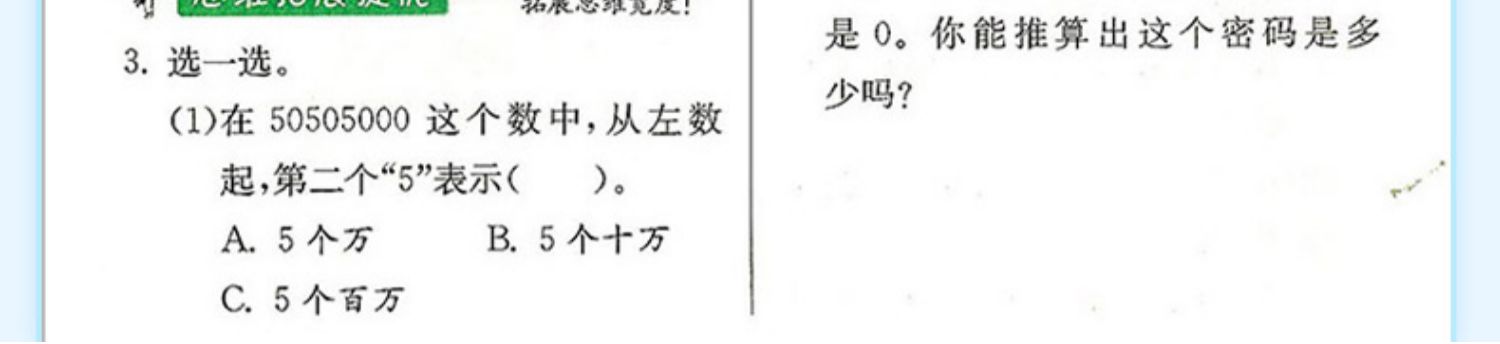 拓展思维宽度!
3. 选一选。
(1)在 50505000 这个数中,从左数
起,第二个“5”表示(  )。
A. 5 个万  B. 5 个十万
C. 5 个百万
是 0。你能推算出这个密码是多
少吗?